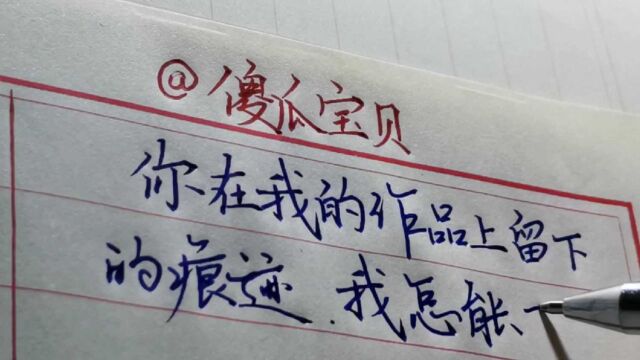 @傻瓜宝贝
你在我的作品上留下
的痕迹.我怎能